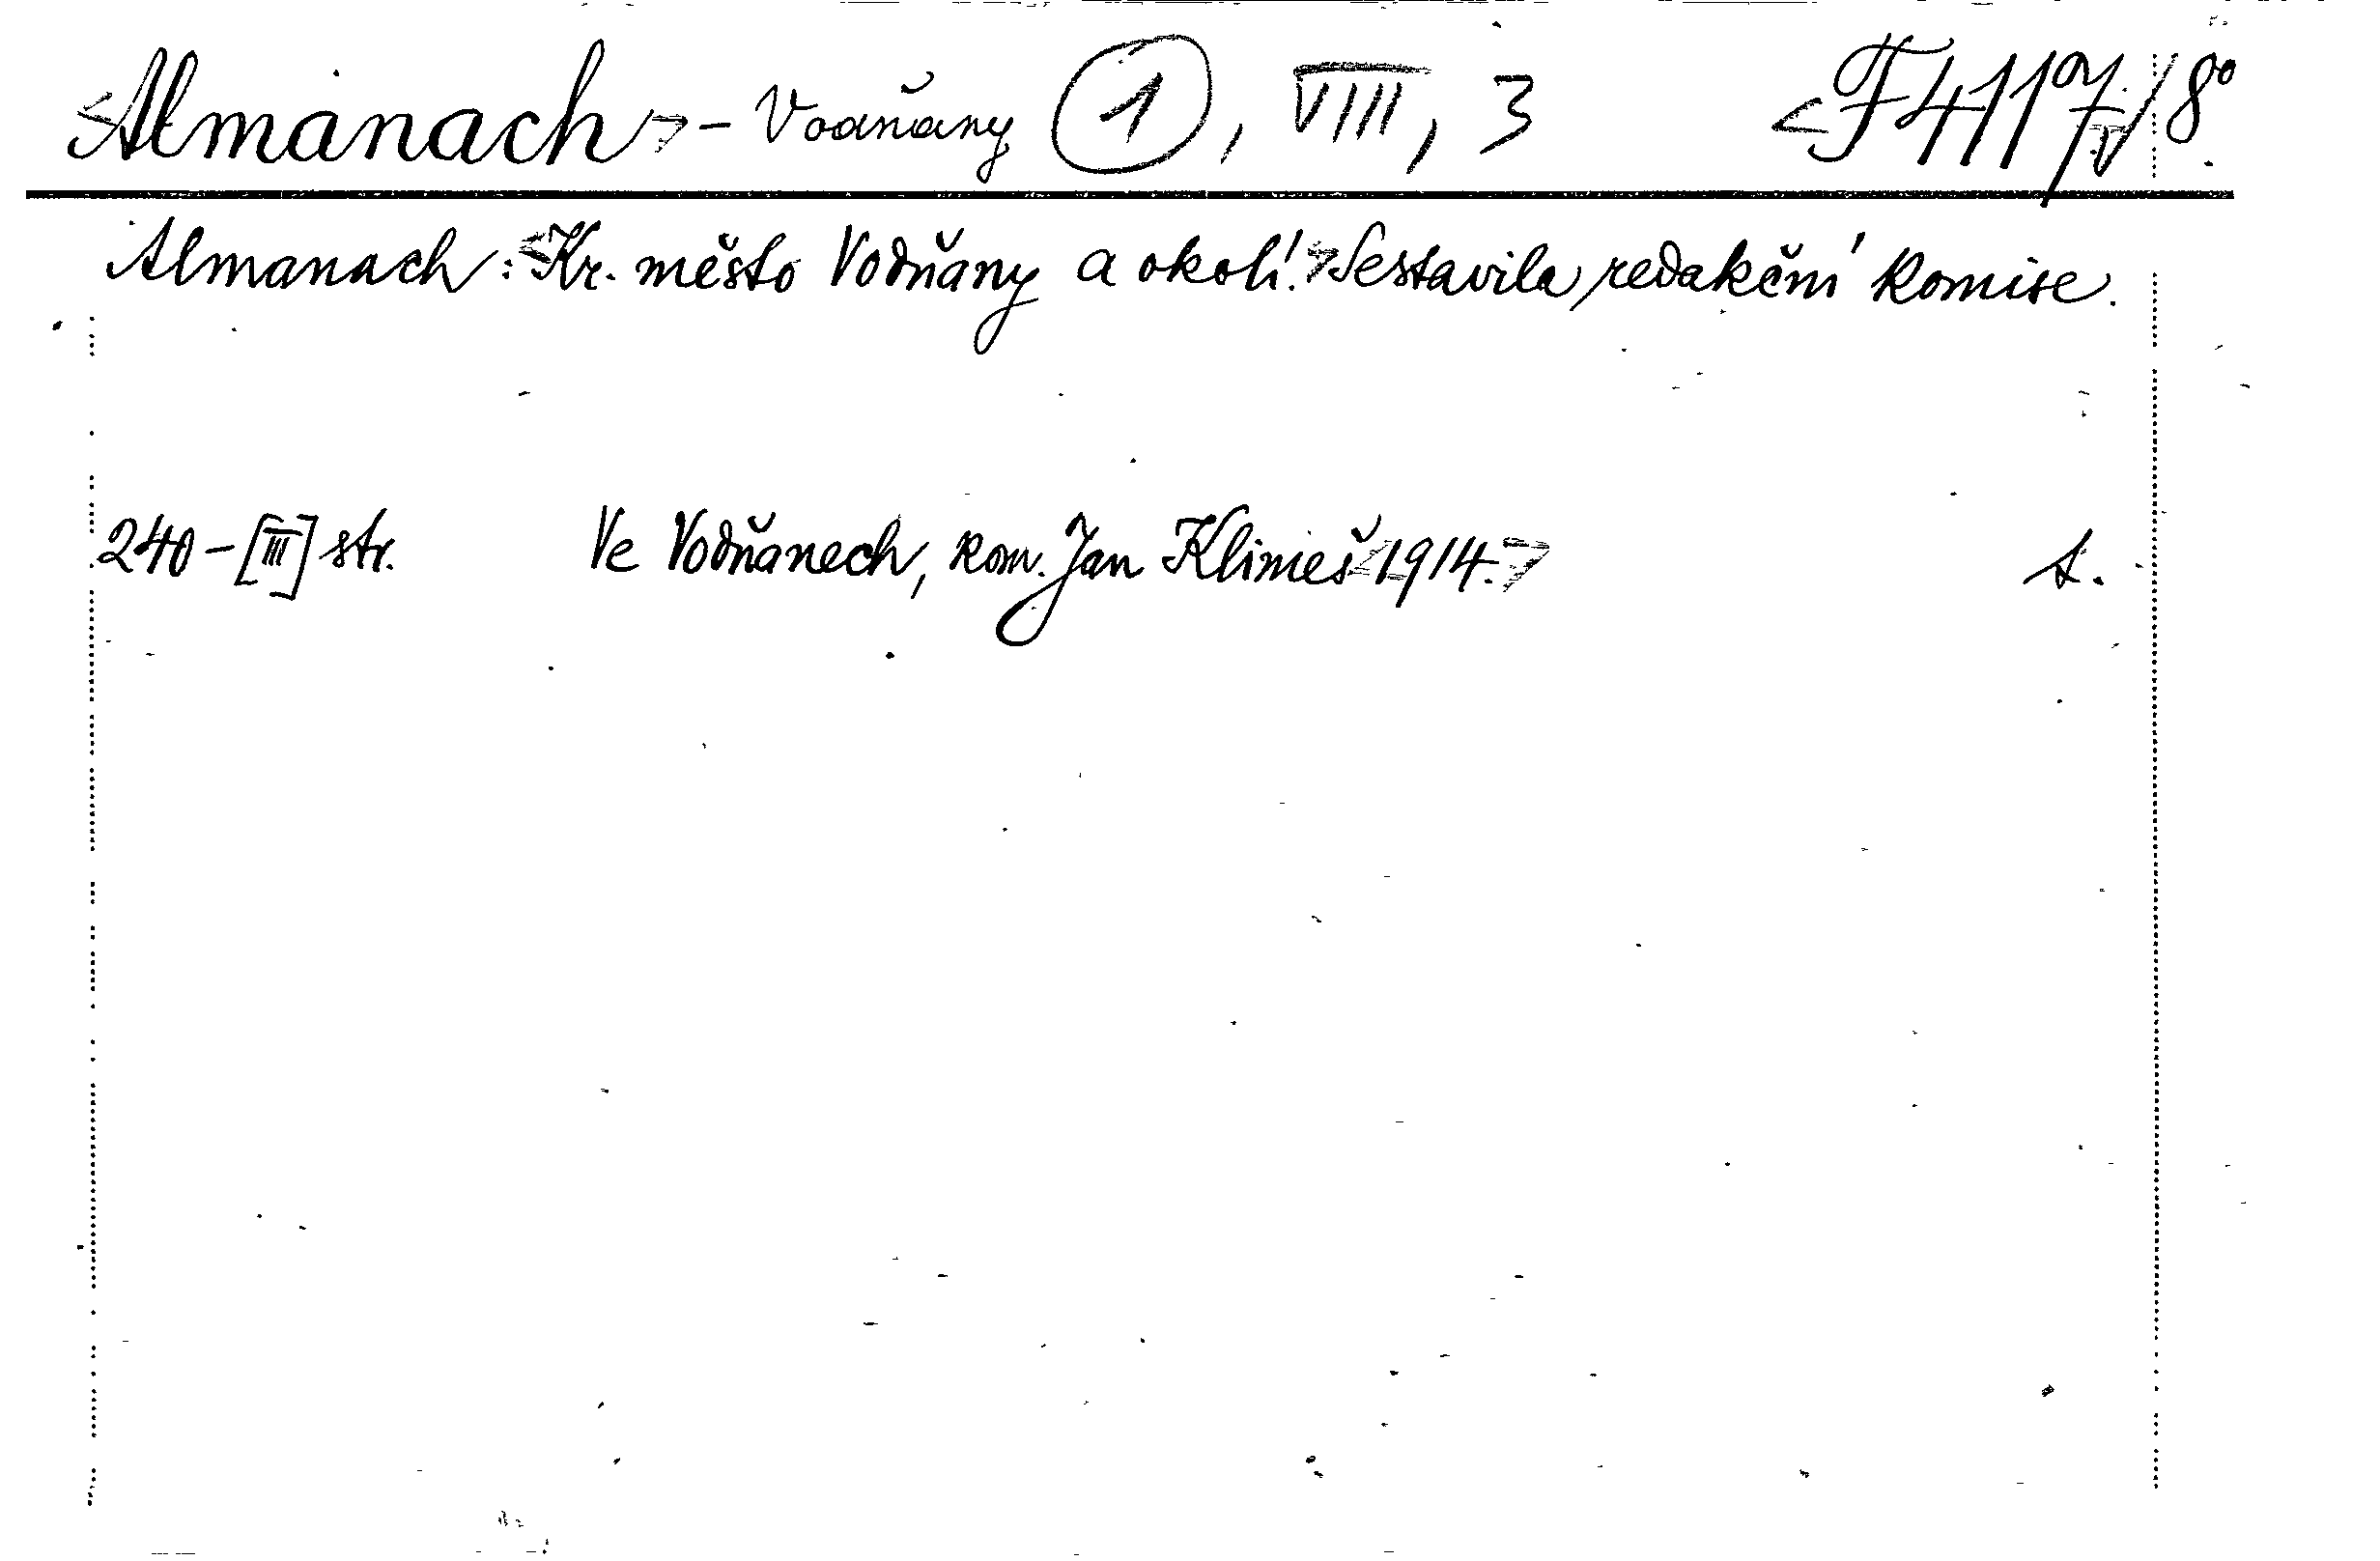 <Almanach> - Vodňany ①, VIII, 3 <F 4117/8°.
Almanach: <Kr. město Vodňany a okolí.> Sestavila redakční komise.
240-[III] str. Ve Vodňanech, kom. Jan Klimeš <1914.> s.